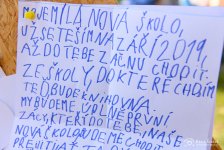 MOJE MILÁ NOVÁ ŠKOLO,
UŽ SE TĚŠÍM NA ZÁŘÍ 2019,
AŽ DO TEBE ZAČNU CHODIT.
ZE ŠKOLY, DO KTERÉ CHODÍM
TEĎ BUDE KNIHOVNA.
MY BUDEME ÚPLNĚ PRVNÍ
ŽÁCI, KTEŘÍ DO TEBE, NAŠE
NOVÁ ŠKOLO, BUDEME CHODIT